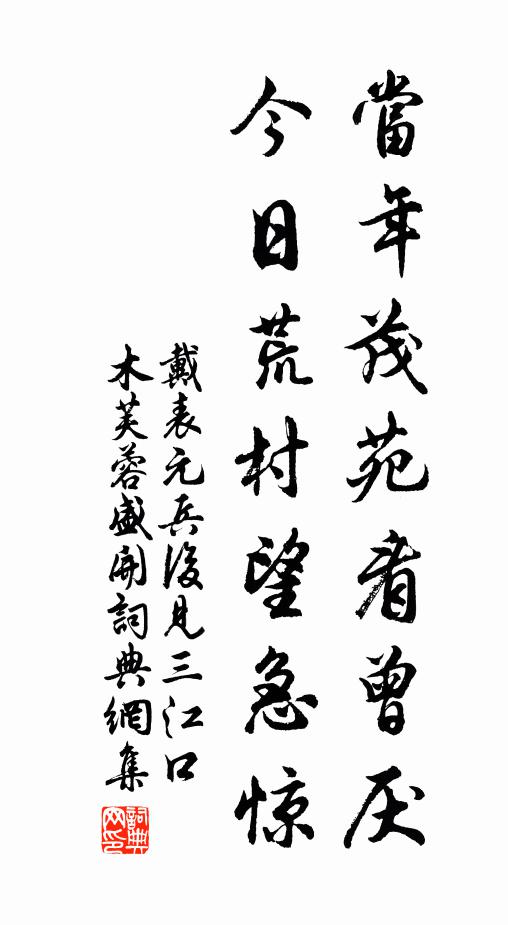 當年茂苑看曾厌
今日荒村望急惊
戴表元兵後见三江口
木芙蓉盛開詞典網集
詞典网印